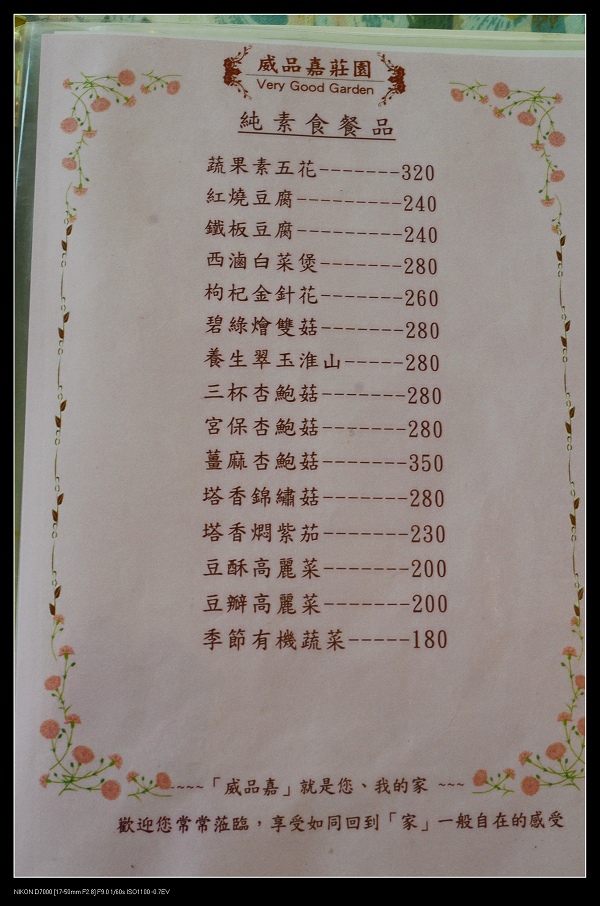 威品嘉莊園
Very Good Garden
純素食餐品
蔬果素五花-------320
紅燒豆腐---------240
鐵板豆腐---------240
西滷白菜煲-------280
枸杞金針花-------260
碧綠燴雙菇-------280
養生翠玉淮山-----280
三杯杏鮑菇-------280
宮保杏鮑菇-------280
薑麻杏鮑菇-------350
塔香錦繡菇-------280
塔香燜紫茄-------230
豆酥高麗菜-------200
豆瓣高麗菜-------200
季節有機蔬菜-----180
~~~~「威品嘉」就是您、我的家 ~~~
歡迎您常常蒞臨，享受如同回到「家」一般自在的感受
NIKON D7000 [17-50mm F2.8] F9.0 1/60s ISO1100 -0.7EV